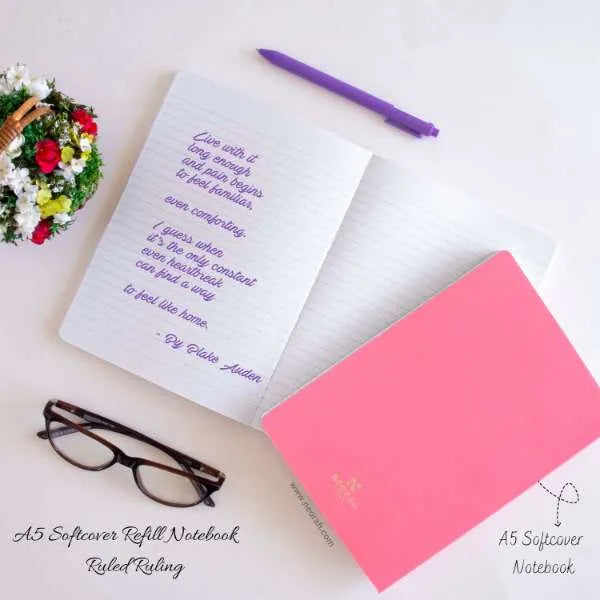 Live with it
long enough
and pain begins
to feel familiar,
even comforting.
I guess when
it's the only constant
even heartbreak
can find a way
to feel like home.
- By Blake Auden
NEORAH
www.neorah.com
A5 Softcover Refill Notebook
Ruled Ruling
A5 Softcover
Notebook